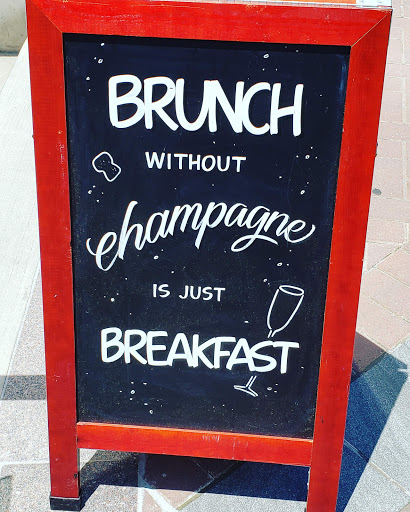 BRUNCH
WITHOUT
champagne
IS JUST
BREAKFAST